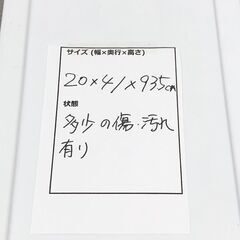 サイズ (幅×奥行×高さ)
20×41×93.5cm
状態
多少の傷・汚れ
有り